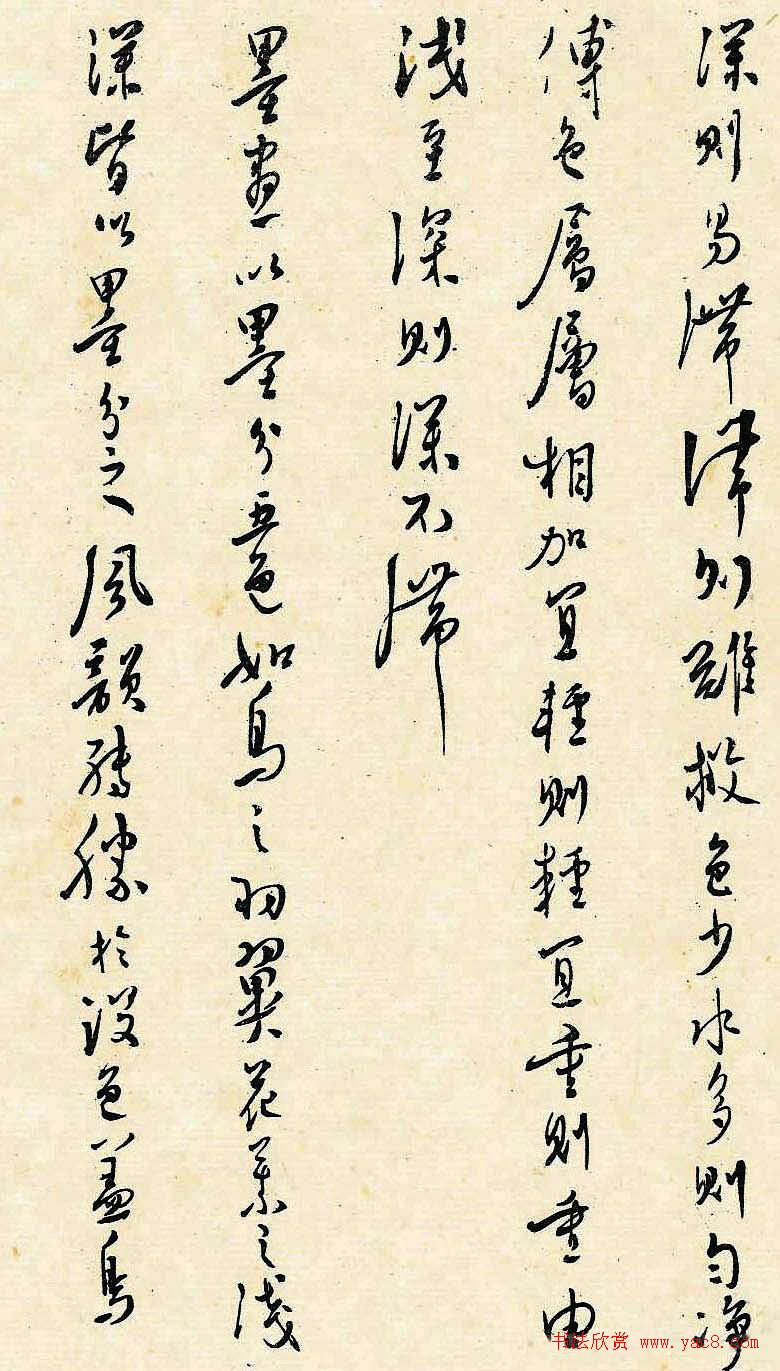 深則易滯滯則難救色少水多則勻淨
傅色層層相加宜輕則輕宜重則重由
淺至深則深不滯
墨畫以墨分五色如鳥之羽翼花葉之淺
深皆以墨分之風韻殊勝於設色蓋鳥
书法欣赏 www.yac8.com